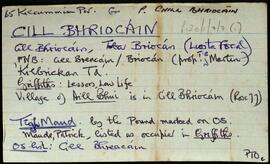 65 Kilcummin Par. G P. CHILL BHRIOCÁIN
CILL BHRIOCÁIN
Cill Bhriocáin, Tobar Briocáin (Loch Fada)
PNB: Cill Breacáin / Briocán (prop. Martin)
Kilbrickan Td.
Griffiths: Lessor, Law Life
Village of Aill Bhuí is in Cill Bhriocáin
Teas Maud by the Pound marked on OS.
Maude, Patrick, listed as occupier in Griffiths
OS list: Cill Bhreacáin
PTO